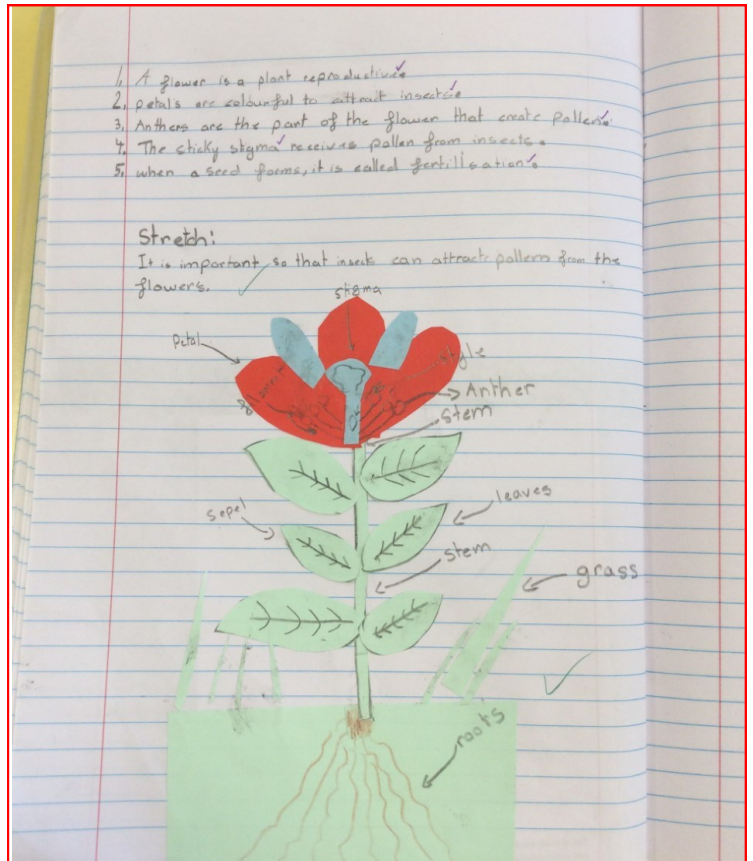 1. A flower is a plant reproductive.
2. petals are colourful to attrait insects.
3. Anthers are the part of the flower that create pollen.
4. The sticky stigma receives pollen from insects.
5. when a seed forms, it is called fertilisation.
Stretch:
It is important so that insects can attract pollen from the
flowers.
stigma
Petal
style
Anther
stem
leaves
sepel
stem
grass
roots